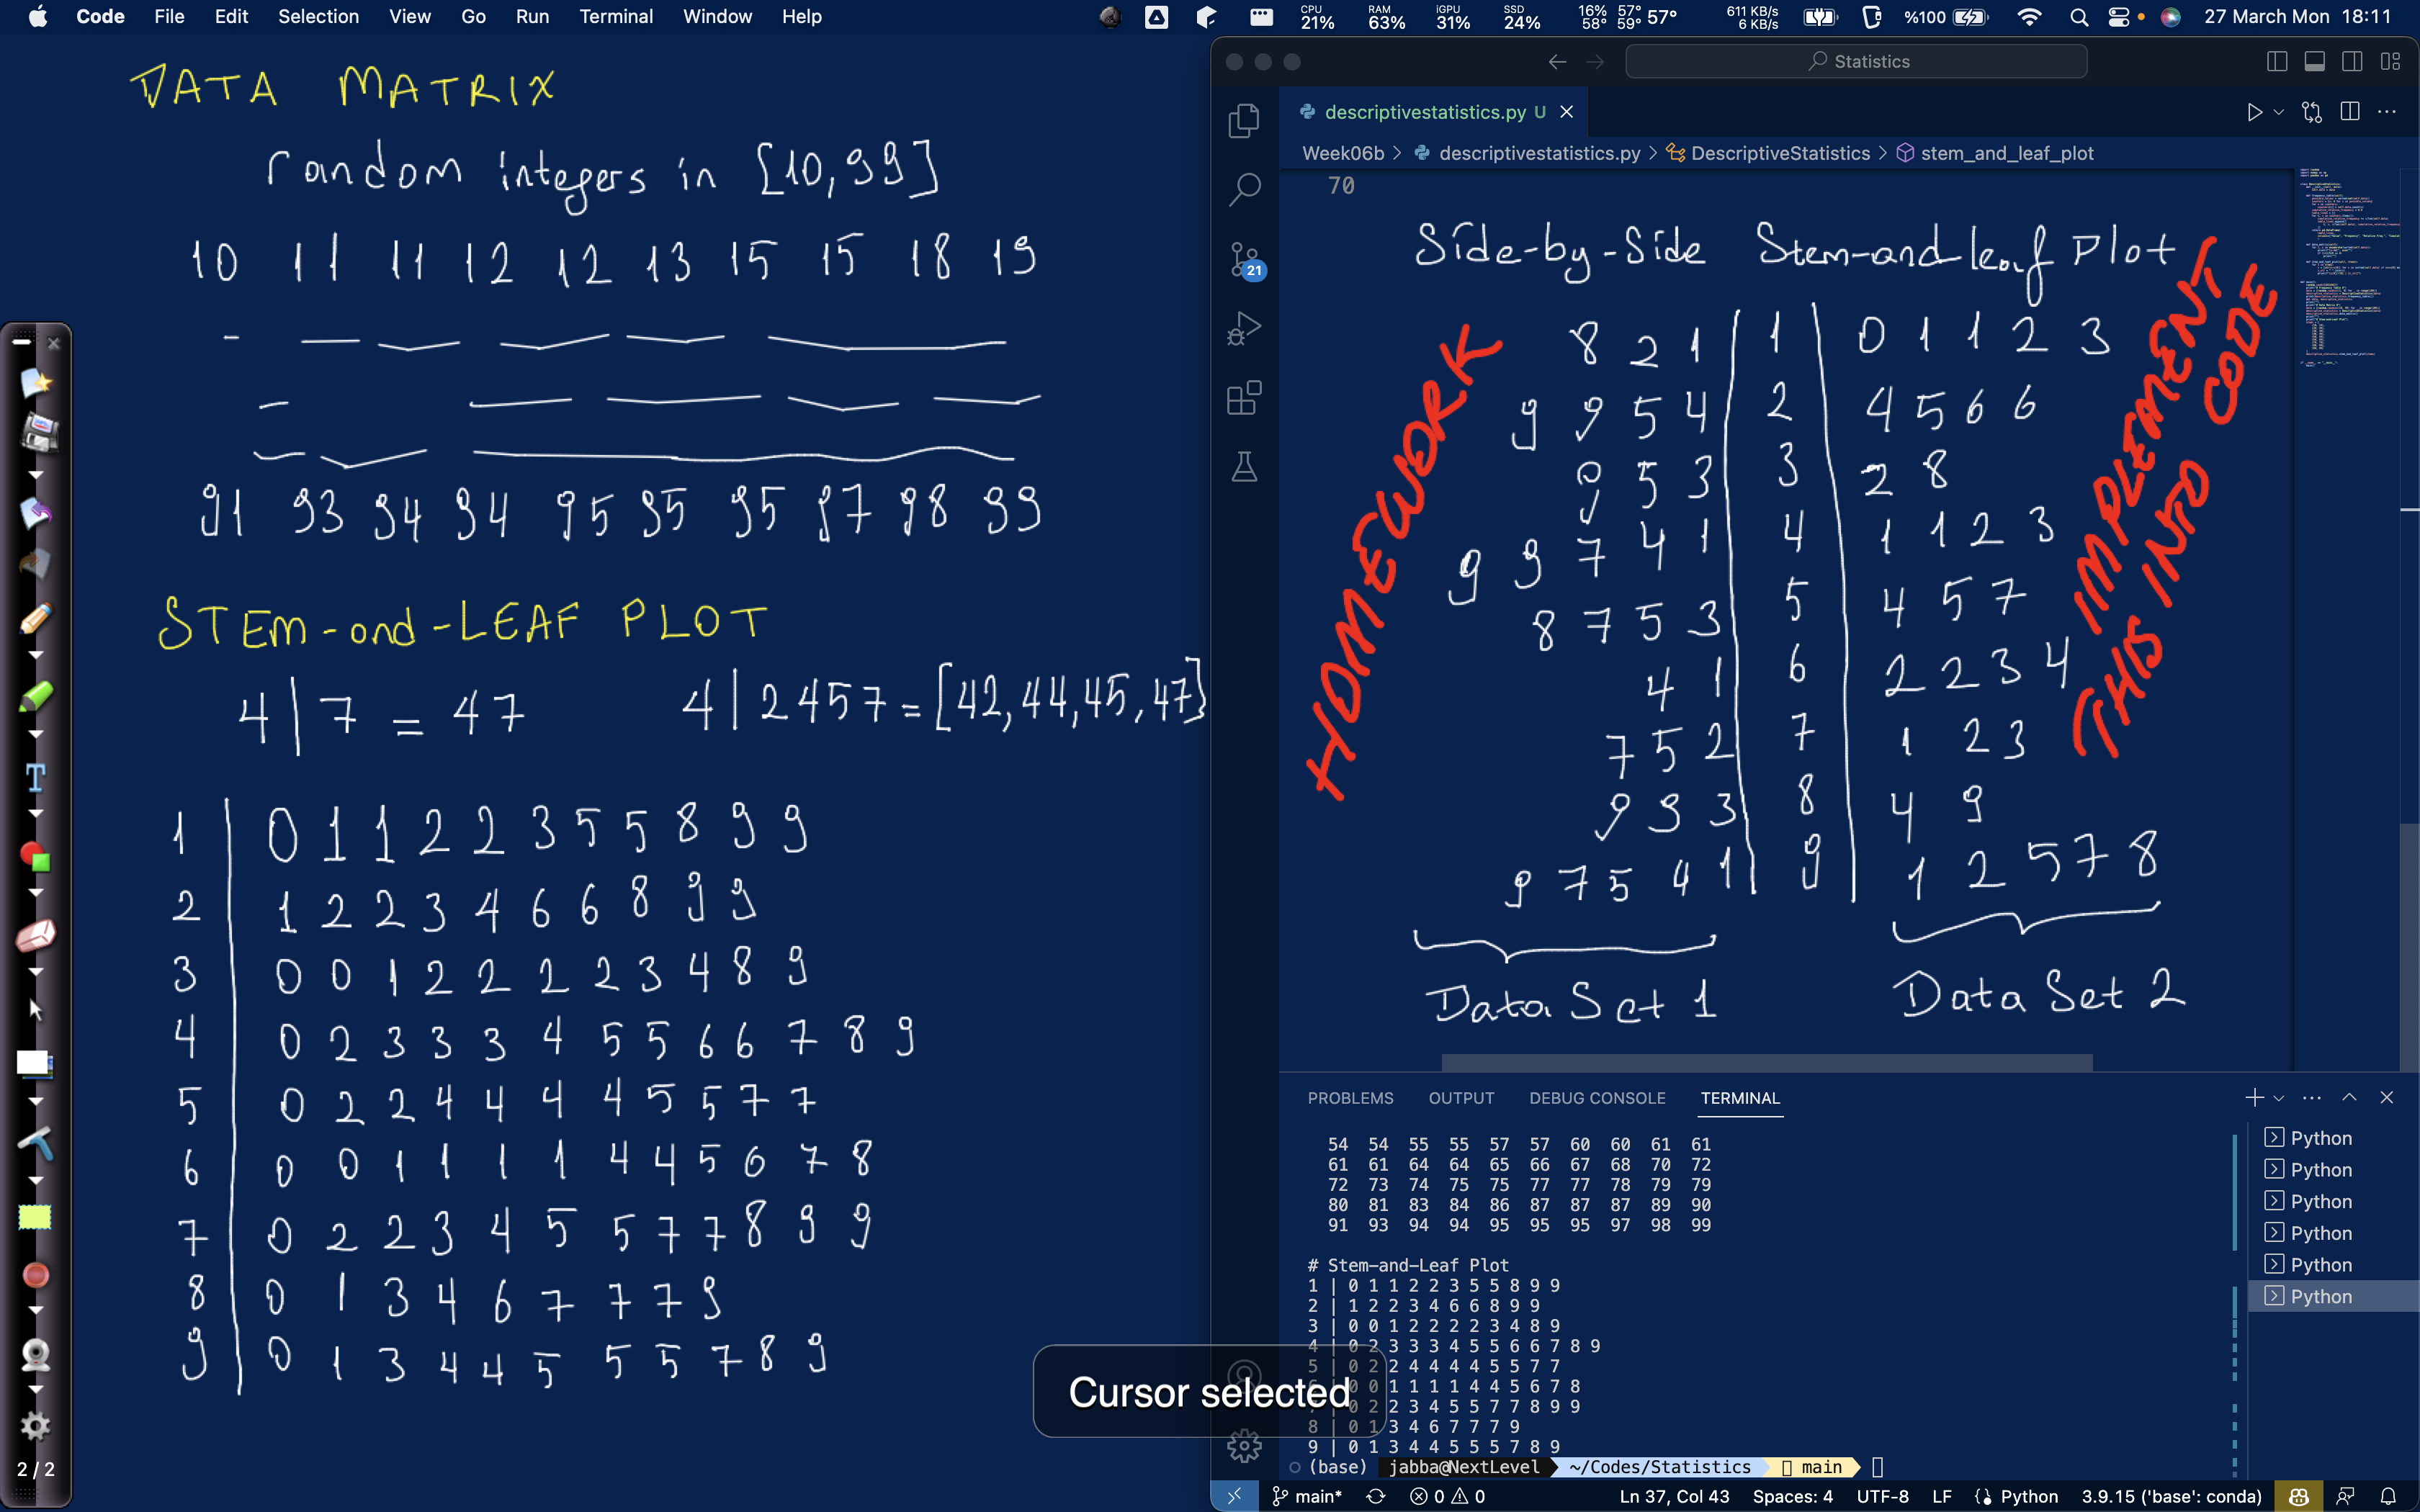 Code File Edit Selection View Go Run Terminal Window Help
CPU 21% RAM 63% iGPU 31% SSD 24% 16% 58° 57° 59° 57° 611 KB/s 6 KB/s %100 27 March Mon 18:11
DATA MATRIX
random integers in [10,99]
10 11 11 12 12 13 15 15 18 19
91 93 94 94 95 95 95 97 98 99
STEM-and-LEAF PLOT
4|7 = 47 4|2457 = [42,44,45,47]
1 | 0 1 1 2 2 3 5 5 8 9 9
2 | 1 2 2 3 4 6 6 8 9 9
3 | 0 0 1 2 2 2 2 3 4 8 9
4 | 0 2 3 3 3 4 5 5 6 6 7 8 9
5 | 0 2 2 4 4 4 4 5 5 7 7
6 | 0 0 1 1 1 1 4 4 5 6 7 8
7 | 0 2 2 3 4 5 5 7 7 8 9 9
8 | 0 1 3 4 6 7 7 7 9
9 | 0 1 3 4 4 5 5 5 7 8 9
2/2
Cursor selected
Statistics
descriptivestatistics.py U
Week06b > descriptivestatistics.py > DescriptiveStatistics > stem_and_leaf_plot
70
21
Side-by-Side Stem-and-leaf Plot
8 2 1 | 1 | 0 1 1 2 3
9 9 5 4 | 2 | 4 5 6 6
9 5 3 | 3 | 2 8
9 9 7 4 1 | 4 | 1 1 2 3
8 7 5 3 | 5 | 4 5 7
4 1 | 6 | 2 2 3 4
7 5 2 | 7 | 1 2 3
9 9 3 | 8 | 4 9
9 7 5 4 1 | 9 | 1 2 5 7 8
Data Set 1 Data Set 2
HOMEWORK
IMPLEMENT
THIS INTO CODE
PROBLEMS OUTPUT DEBUG CONSOLE TERMINAL
54 54 55 55 57 57 60 60 61 61
61 61 64 64 65 66 67 68 70 72
72 73 74 75 75 77 77 78 79 79
80 81 83 84 86 87 87 87 89 90
91 93 94 94 95 95 95 97 98 99
# Stem-and-Leaf Plot
1 | 0 1 1 2 2 3 5 5 8 9 9
2 | 1 2 2 3 4 6 6 8 9 9
3 | 0 0 1 2 2 2 2 3 4 8 9
4 | 0 2 3 3 3 4 5 5 6 6 7 8 9
5 | 0 2 2 4 4 4 4 5 5 7 7
| 0 0 1 1 1 1 4 4 5 6 7 8
| 0 2 2 3 4 5 5 7 7 8 9 9
8 | 0 1 3 4 6 7 7 7 9
9 | 0 1 3 4 4 5 5 5 7 8 9
(base) jabba@NextLevel ~/Codes/Statistics main
Python
Python
Python
Python
Python
Python
main* 0 0 Ln 37, Col 43 Spaces: 4 UTF-8 LF Python 3.9.15 ('base': conda)